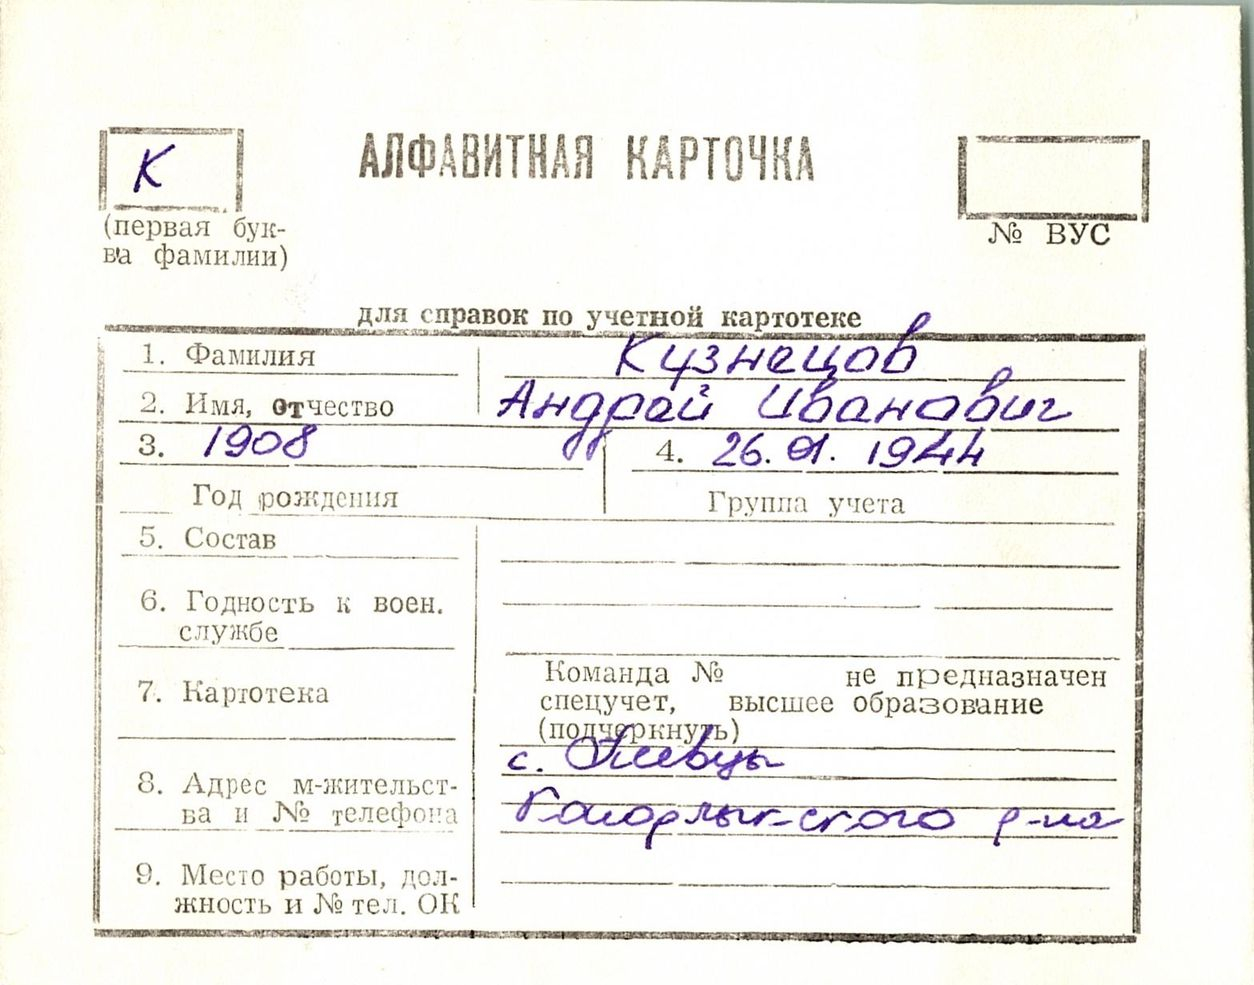 К
АЛФАВИТНАЯ КАРТОЧКА
(первая бук-
ва фамилии)
№ ВУС
для справок по учетной картотеке
1. Фамилия Кузнецов
2. Имя, отчество Андрей Иванович
3. 1908 4. 26. 01. 1944
Год рождения Группа учета
5. Состав
6. Годность к воен.
службе
7. Картотека
Команда № не предназначен
спецучет, высшее образование
(подчеркнуть)
8. Адрес м-жительст-
ва и № телефона
с.
Кагарлыкского р-на
9. Место работы, дол-
жность и № тел. ОК